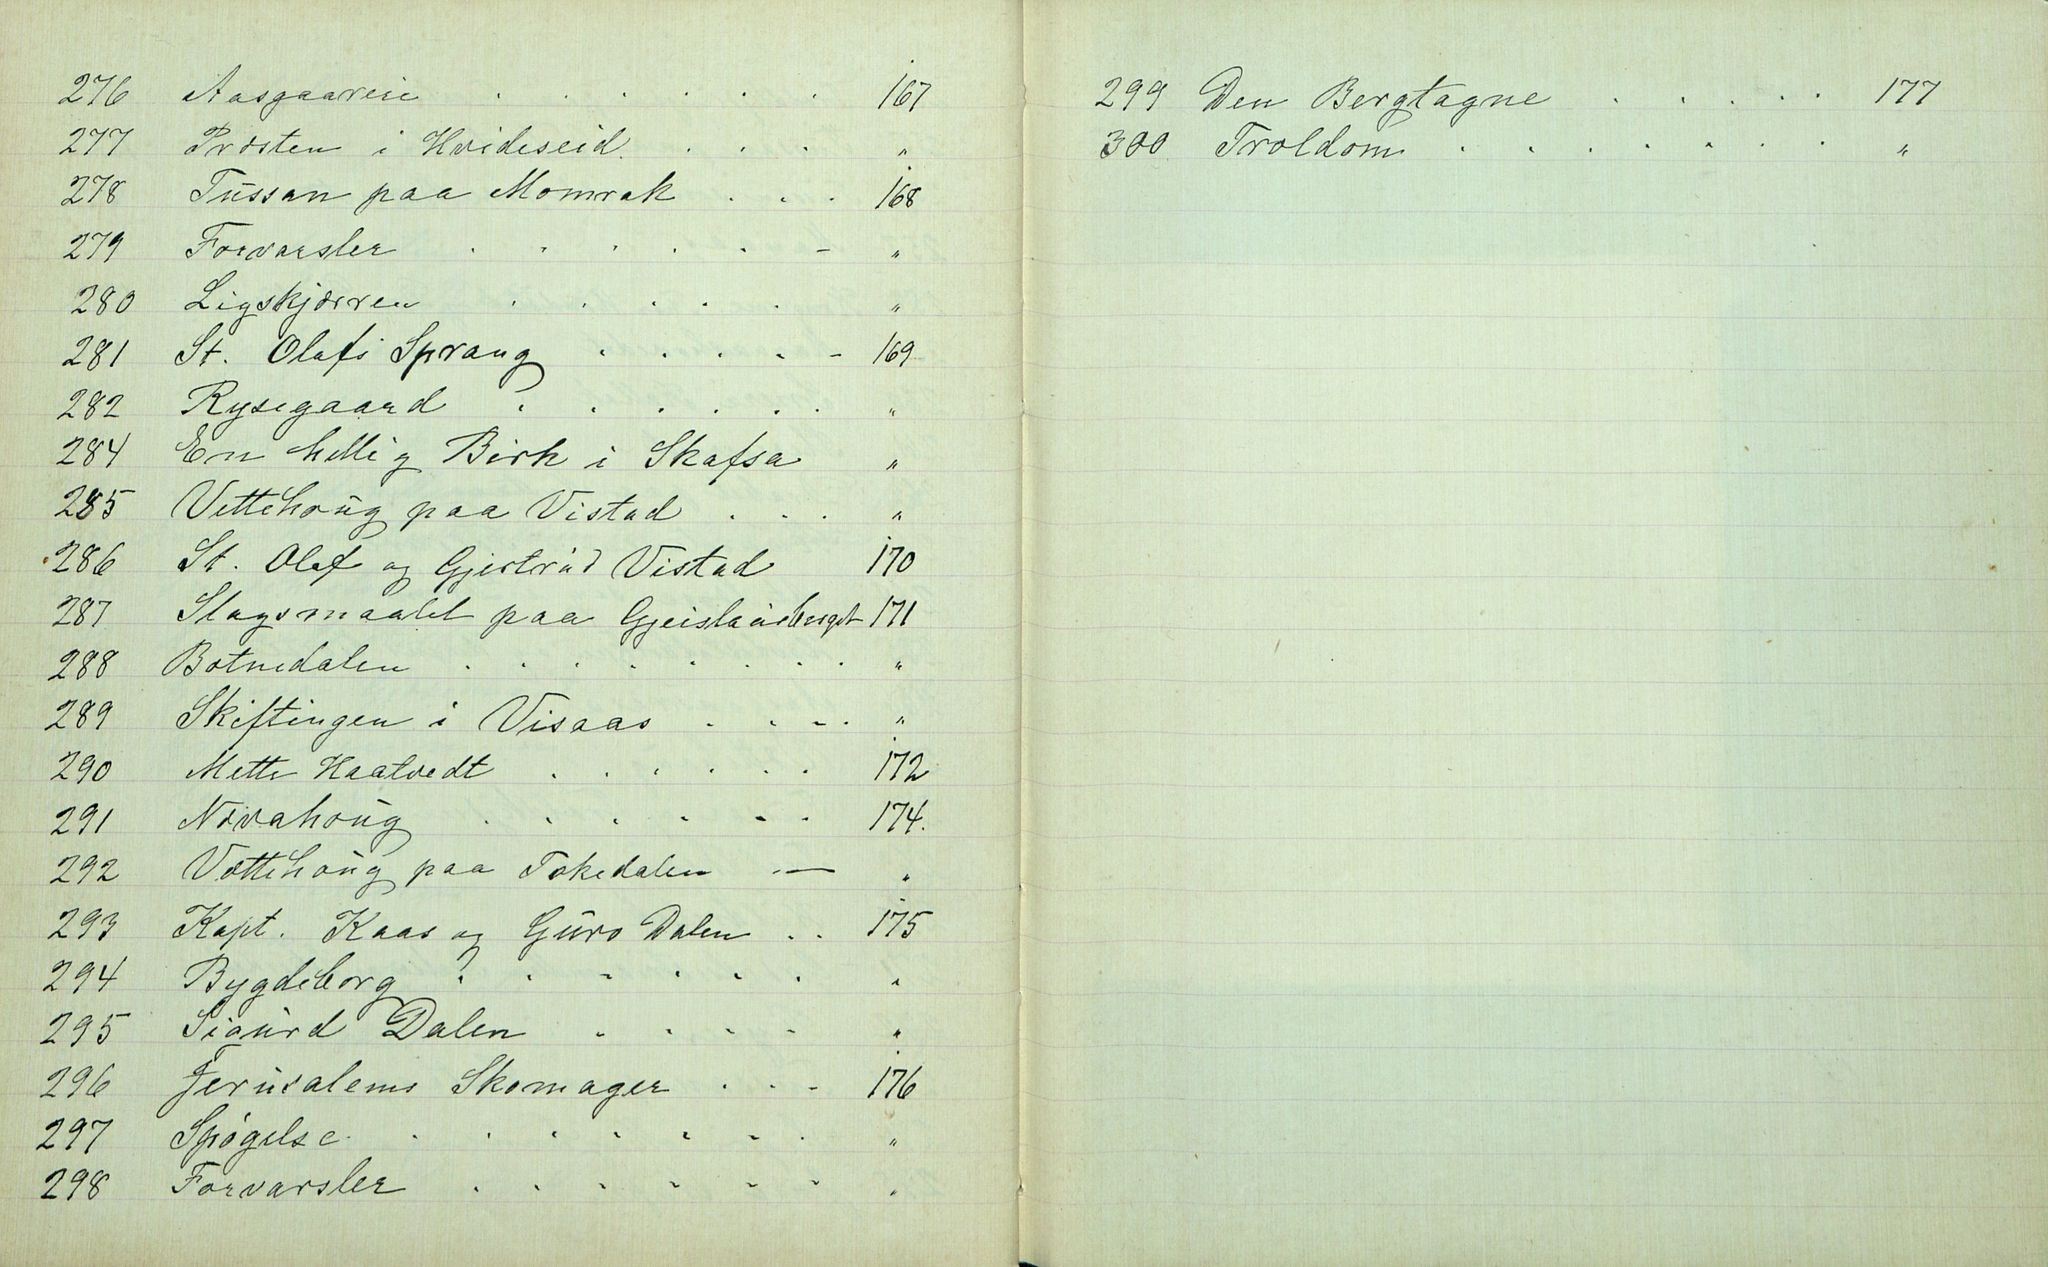 276 Aasgaareie . . . . . . 167
277 Præsten i Hvideseid. . . . "
278 Tussan paa Momrak . . . 168
279 Forvarsler . . . . . - "
280 Ligskjærren . . . . . "
281 St. Olafs Sprang . . . . - 169
282 Rysegaard . . . . . . "
284 En hellig Birk i Skafsa "
285 Vettehoug paa Vistad . . . "
286 St. Olaf og Gjertrud Vistad 170
287 Slagsmaalet paa Gjeislaarberget 171
288 Botnedalen . . . . . . . "
289 Skiftingen i Visaas . . - . "
290 Mette Haatvedt . . . . . . 172
291 Novahoug . . . . . . 174.
292 Vættehoug paa Tokedalen - — "
293 Kapt. Kaas og Guro Dalen . . 175
294 Bygdeborg . . . . . . "
295 Sigurd Dalen . . . . "
296 Jerusalems Skomager . . - 176
297 Spøgelse . . . . . . "
298 Forvarsler . . . . . . "
299 Den Bergtagne . . . . . 177
300 Troldom . . . . . . . "